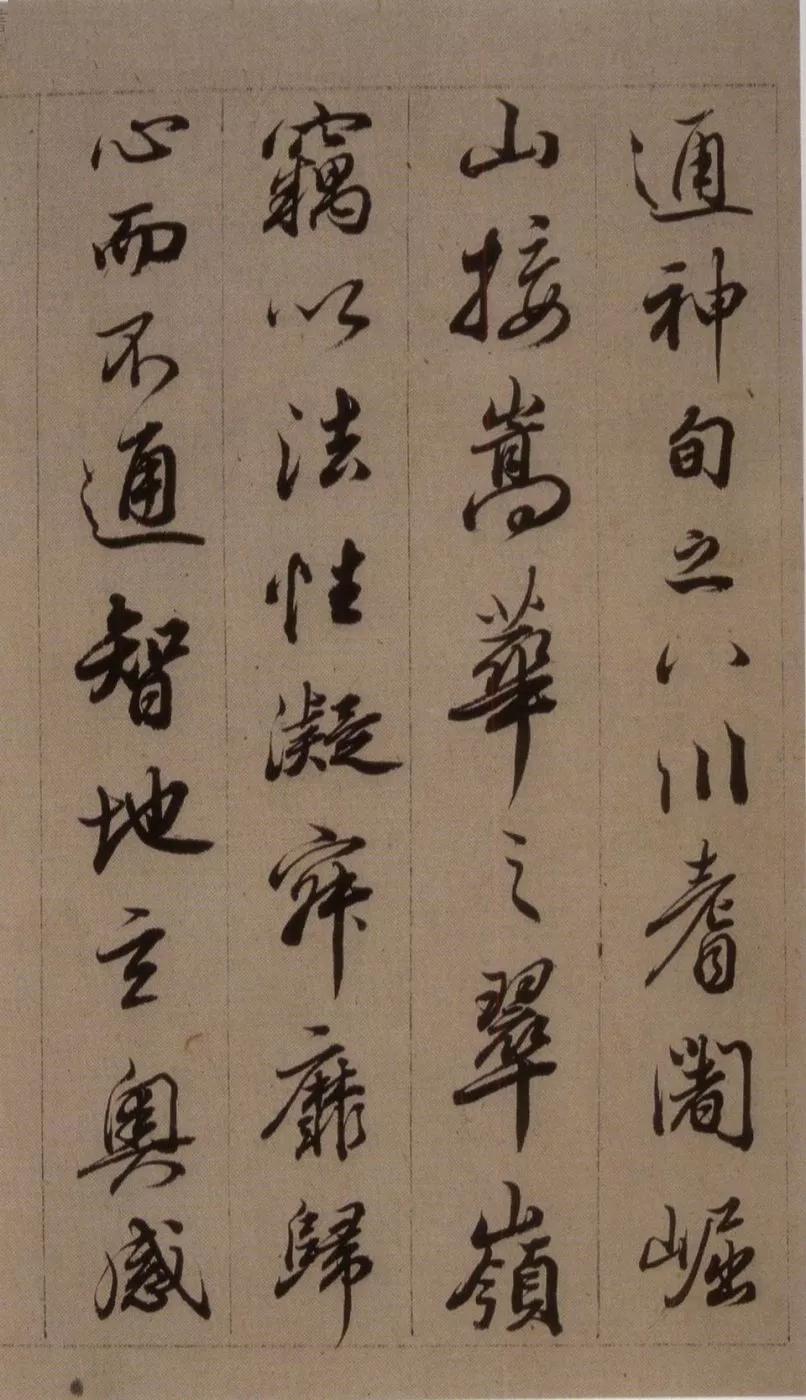 通神甸之八川耆闍崛
山接嵩華之翠嶺
竊以法性凝寂靡歸
心而不通智地玄奥感